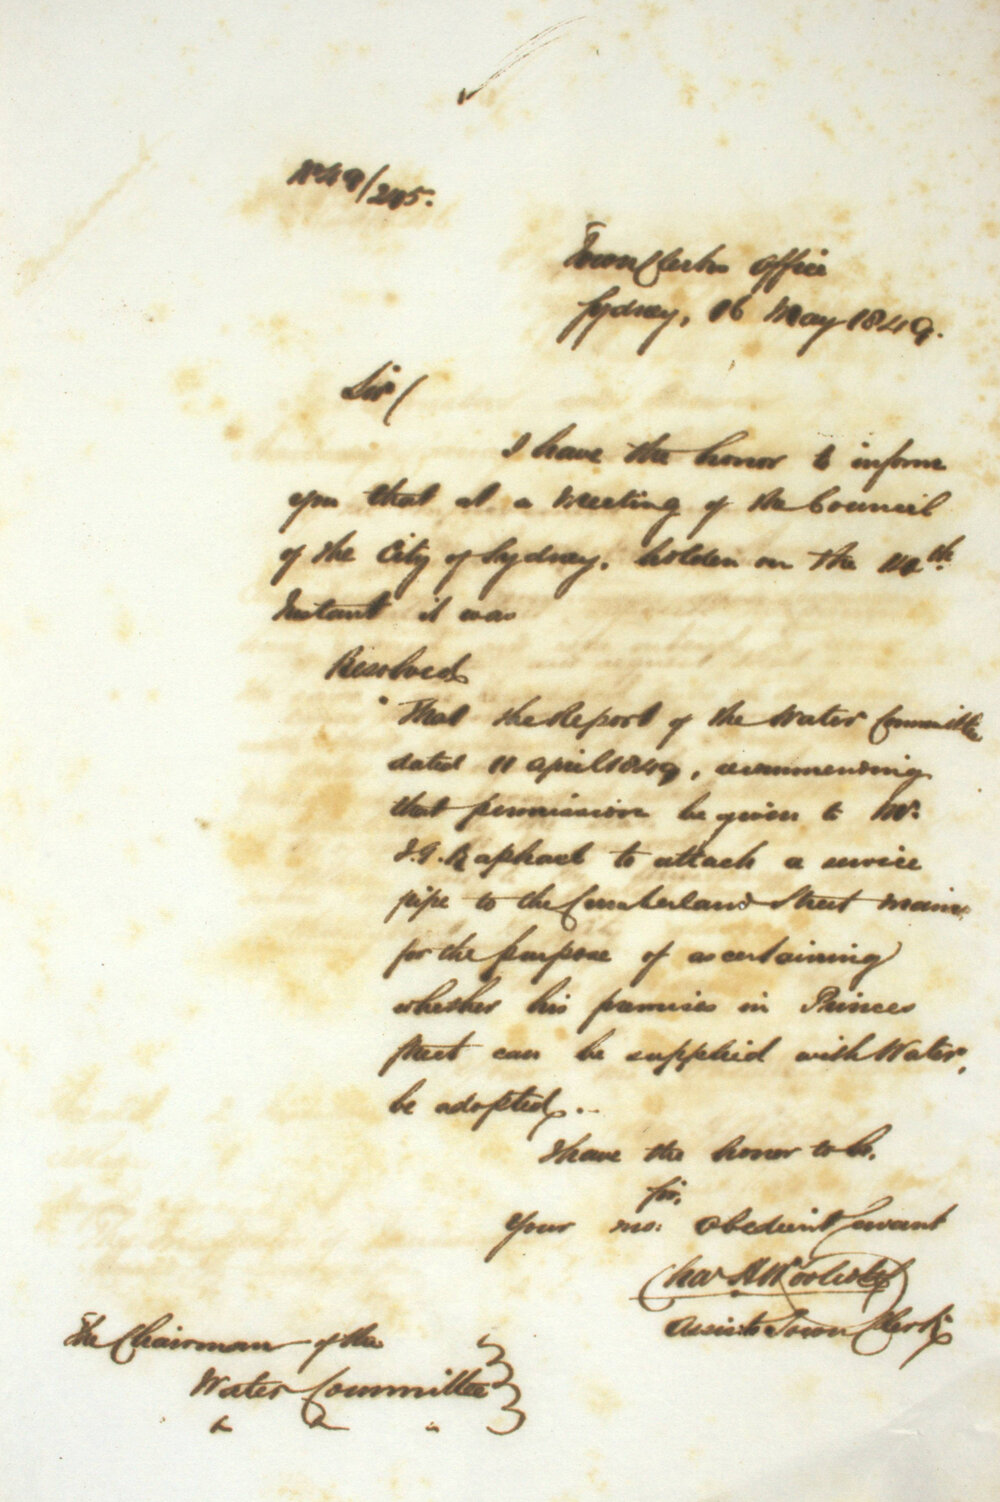 No 49/205.
Town Clerks Office
Sydney, 16 May 1849.
Sir (
I have the honor to inform
you that at a Meeting of the Council
of the City of Sydney, holden on the 14th
Instant it was
Resolved
"That the Report of the Water Committee
dated 11 April 1849, recommending
that permission be given to Mr.
J.G. Raphael to attach a service
pipe to the Cumberland Street main,
for the purpose of ascertaining
whether his premises in Princes
Street can be supplied with Water,
be adopted.
I have the honor to be,
Sir,
Your mo: Obedient Servant
Chas H Woolcott
Assist. Town Clerk
The Chairman of the
Water Committee